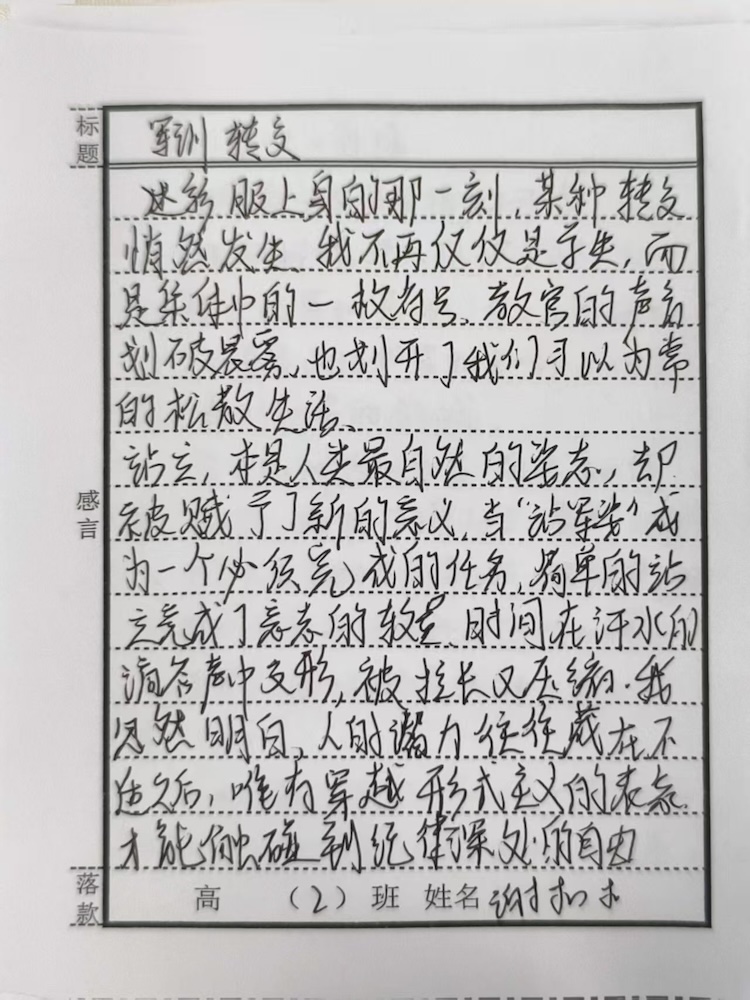 标题
军训 转变
迷彩服上身的那一刻,某种转变
悄然发生。我不再仅仅是学生,而
是集体中的一枚符号。教官的声音
划破晨雾,也划开了我们习以为常
的松散生活。
站立,本是人类最自然的姿态,却
被赋予了新的意义。当“站军姿”成
为一个必须完成的任务,简单的站
立完成了意志的较量。时间在汗水的
滴答声中变形,被拉长又压缩。我
忽然明白,人的潜力往往藏在不
适之后,唯有穿越形式主义的表象
才能触碰到纪律深处的自由
感言
落款
高 (2)班 姓名 谢